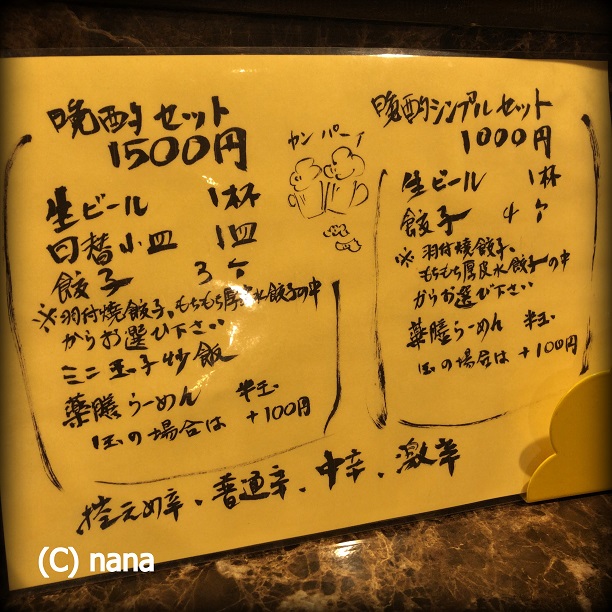 晩酌セット
1500円
生ビール 1杯
日替小皿 1皿
餃子 3ケ
※羽付焼餃子、もちもち厚皮水餃子の中
からお選び下さい
ミニ玉子炒飯
薬膳らーめん 半玉
1玉の場合は +100円
カンパーイ
晩酌シンプルセット
1000円
生ビール 1杯
餃子 4ケ
※羽付焼餃子、
もちもち厚皮水餃子の中
からお選び下さい
薬膳らーめん 半玉
1玉の場合は +100円
控えめ辛、普通辛、中辛、激辛
(C) nana